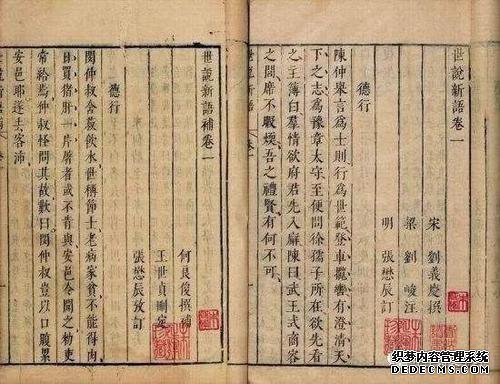 世說新語卷一
宋 劉義慶撰
梁 劉峻注
明 張懋辰訂
德行
陳仲舉言為士則行為世範登車攬轡有澄清天
下之志為豫章太守至便問徐孺子所在欲先看
之主簿曰羣情欲府君先入廨陳曰武王式商容
之閭席不暇煖吾之禮賢有何不可
世說新語補卷一
何良俊撰補
王世貞刪定
張懋辰攷訂
德行
閔仲叔含菽飲水世稱節士老病家貧不能得肉
日買猪肝一片屠者或不肯與安邑令聞之勑吏
常給焉仲叔怪問其故歎曰閔仲叔豈以口腹累
安邑耶遂去客沛
织梦内容管理系统
DEDECMS.COM